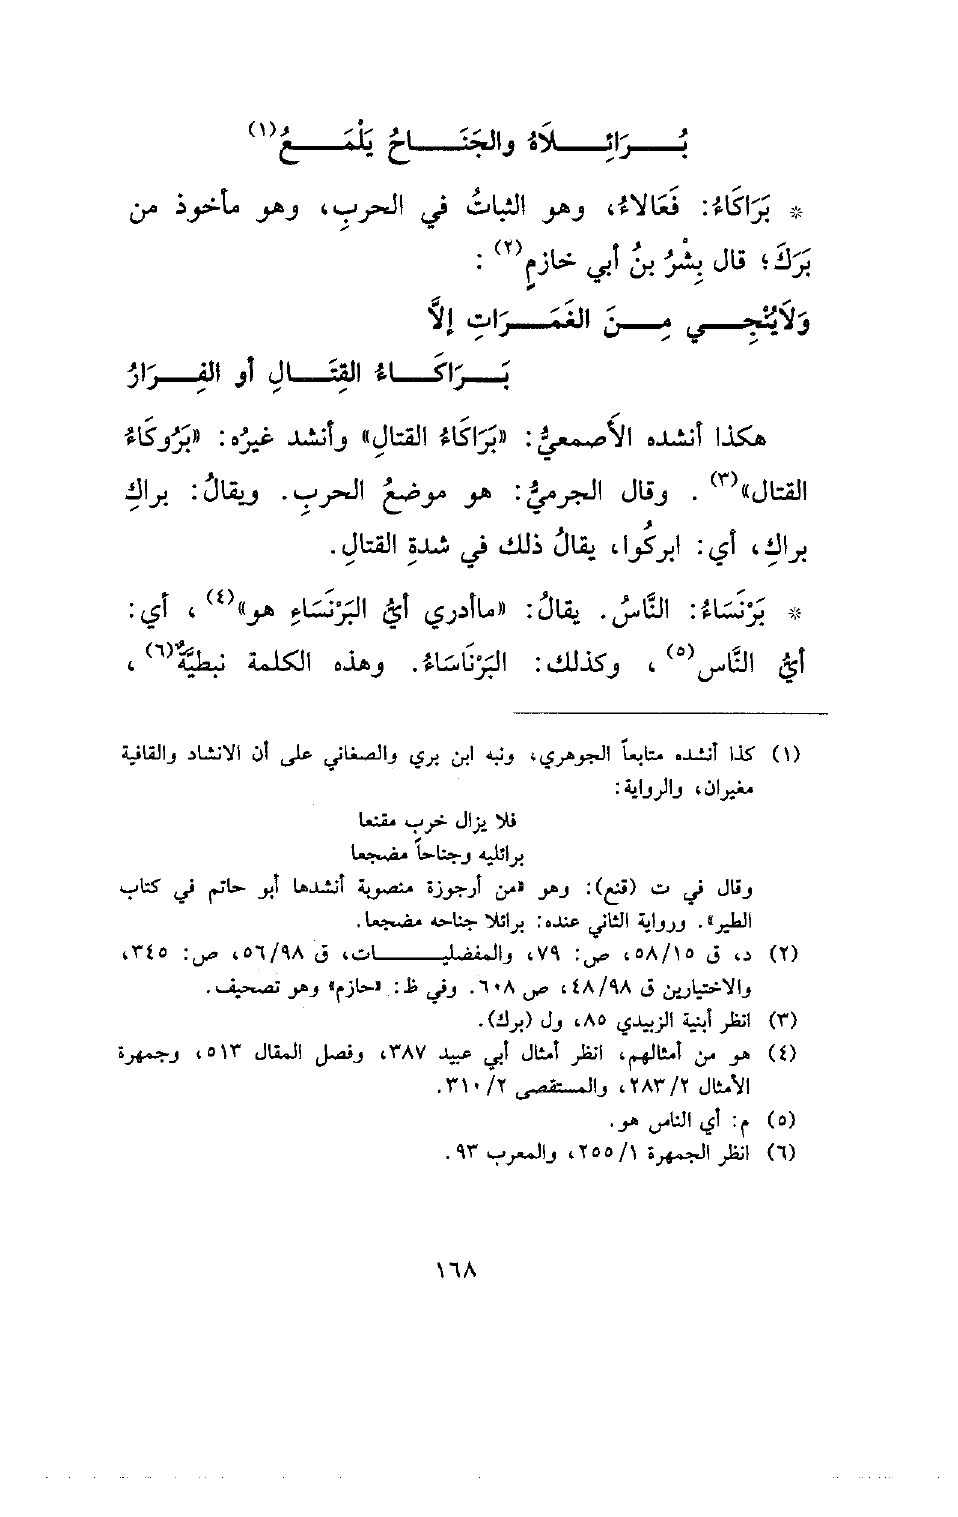 بُرَائِلَاهُ والجَنَاحُ يَلْمَعُ(١)
* بَرَاكَاءُ: فَعَالاءُ، وهو الثباتُ في الحربِ، وهو مأخوذ من
بَرَكَ؛ قال بِشْرُ بنُ أبي خازمٍ(٢) :
وَلَايُنْجِي مِنَ الغَمَرَاتِ إلاَّ
بَرَاكَاءُ القِتَالِ أو الفِرَارُ
هكذا أنشده الأصمعيُّ: «بَرَاكَاءُ القتالِ» وأنشد غيرُه: «بَرُوكَاءُ
القتال»(٣) . وقال الجرميُّ: هو موضعُ الحربِ. ويقالُ: براكِ
براكِ، أي: ابركُوا، يقالُ ذلك في شدةِ القتالِ.
* بَرْنَسَاءُ: النَّاسُ. يقالُ: «ماأدري أيُّ البَرْنَسَاءِ هو»(٤) ، أي:
أيُّ النَّاس(٥) ، وكذلك: البَرْنَاسَاءُ. وهذه الكلمة نبطيَّةٌ(٦) ،
(١) كذا أنشده متابعاً الجوهري، ونبه ابن بري والصغاني على أن الانشاد والقافية
مغيران، والرواية:
فلا يزال خرب مقنعا
برائليه وجناحاً مضجعا
وقال في ت (قنع): وهو «من أرجوزة منصوبة أنشدها أبو حاتم في كتاب
الطير». ورواية الثاني عنده: برائلا جناحه مضجعا.
(٢) د، ق ٥٨/١٥، ص: ٧٩، والمفضليات، ق ٥٦/٩٨، ص: ٣٤٥،
والاختيارين ق ٤٨/٩٨، ص ٦٠٨. وفي ظ: «حازم» وهو تصحيف.
(٣) انظر أبنية الزبيدي ٨٥، ول (برك).
(٤) هو من أمثالهم، انظر أمثال أبي عبيد ٣٨٧، وفصل المقال ٥١٣، وجمهرة
الأمثال ٢/ ٢٨٣، والمستقصى ٢/ ٣١٠.
(٥) م: أي الناس هو.
(٦) انظر الجمهرة ١/ ٢٥٥، والمعرب ٩٣.
١٦٨